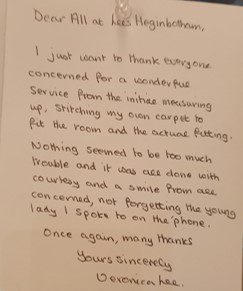 Dear All at Lees Heginbotham,
I just want to thank everyone
concerned for a wonderful
service from the initial measuring
up, stitching my own carpet to
fit the room and the actual fitting.
Nothing seemed to be too much
trouble and it was all done with
courtesy and a smile from all
concerned, not forgetting the young
lady I spoke to on the 'phone.
Once again, many thanks
Yours Sincerely
Veronica Lee.